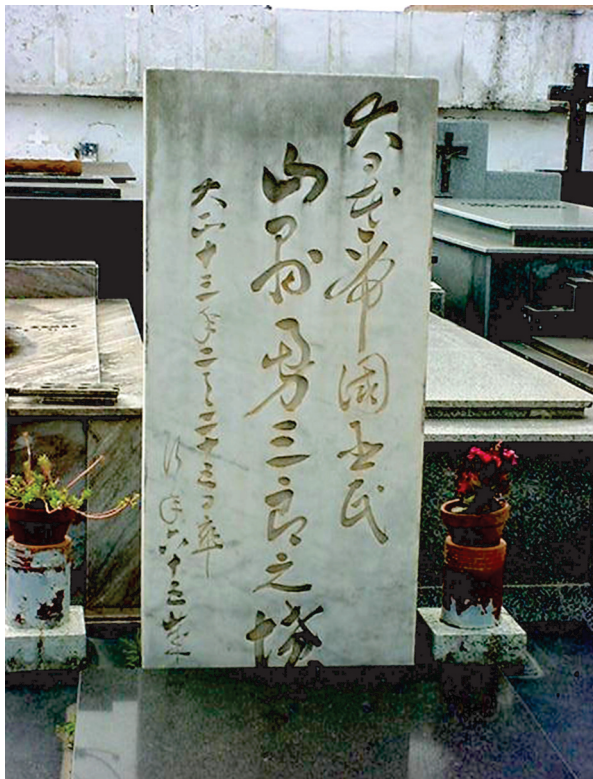 大日本帝國臣民
山縣勇三郎之
大正十三年二月二十三日卒
行年六十五歳